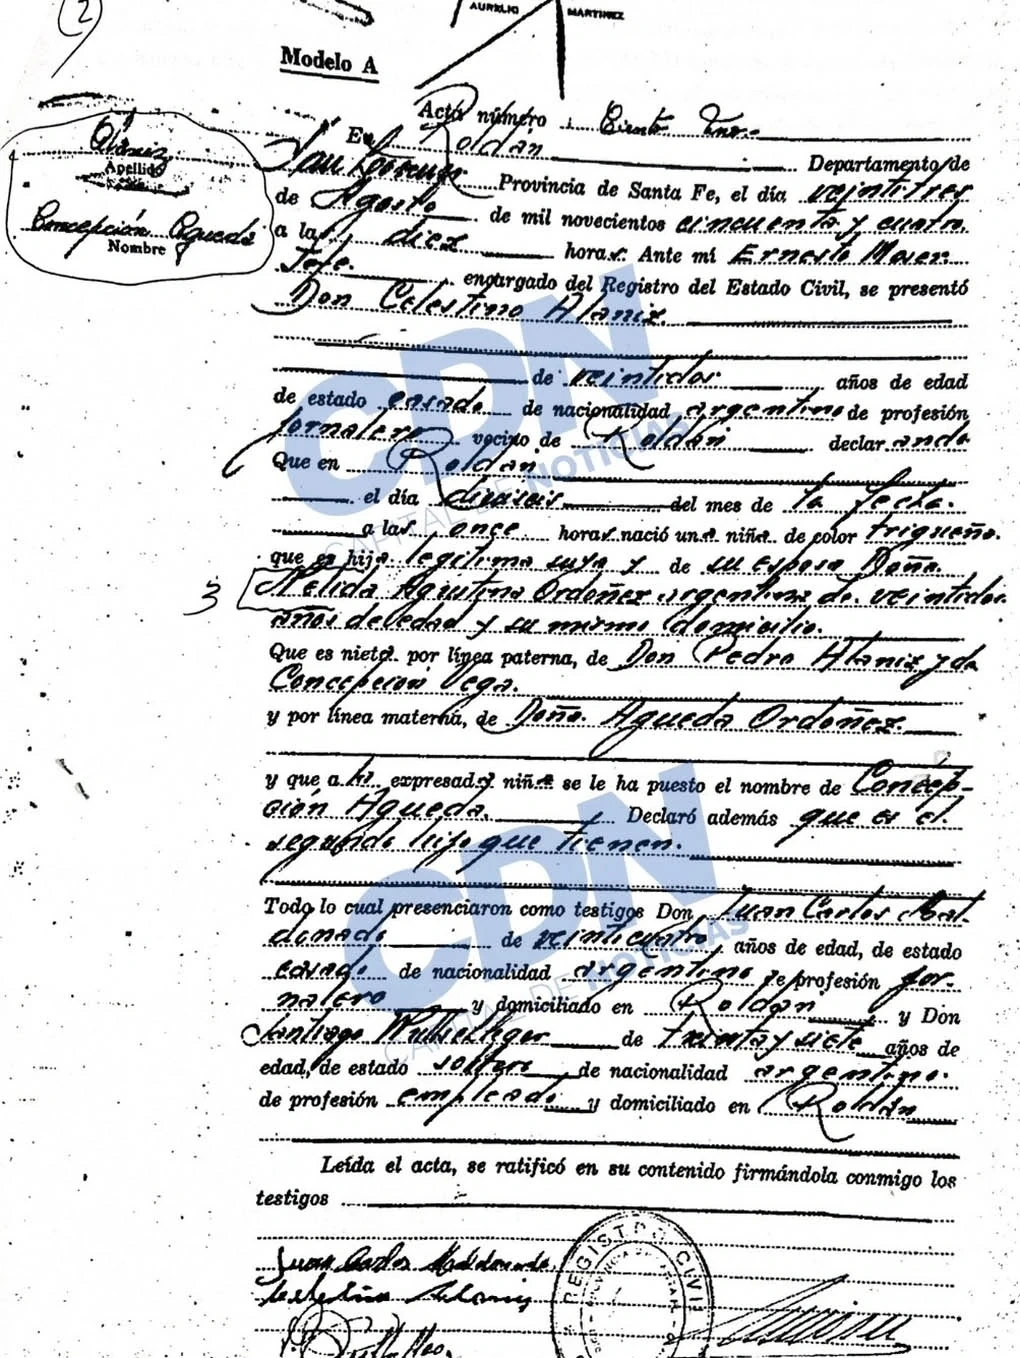 (2)
AURELIO MARTINEZ
Modelo A
Acta número Ciento
Apellido
Concepción Agueda
Nombre
En Roldán Departamento de
San Lorenzo Provincia de Santa Fe, el día veintitres
de Agosto de mil novecientos cincuenta y cuatro
a las diez horas. Ante mí Ernesto Moser
Jefe. encargado del Registro del Estado Civil, se presentó
Don Celestino Alaniz.
de veintidos años de edad
de estado casado de nacionalidad argentino de profesión
jornalero vecino de Roldán declarando
Que en Roldán
el día dieciseis del mes de la fecha.
a las once horas nació una niña de color trigueño.
que es hija legítima suya y de su esposa Doña.
3 Nelida Agustina Ordoñez argentina de veintidos
años de edad y su mismo domicilio.
Que es nieta por línea paterna, de Don Pedro Alaniz y de
Concepción Vega.
y por línea materna, de Doña Agueda Ordoñez.
y que a la expresada niña se le ha puesto el nombre de Concep-
ción Agueda. Declaró además que es el
segundo hijo que tienen.
Todo lo cual presenciaron como testigos Don Juan Carlos Mal-
donado de veinticuatro años de edad, de estado
casado de nacionalidad argentino de profesión jor-
nalero y domiciliado en Roldán y Don
Santiago de treinta y siete años de
edad, de estado soltero de nacionalidad argentino.
de profesión empleado y domiciliado en Roldán
Leída el acta, se ratificó en su contenido firmándola conmigo los
testigos
Juan Carlos Maldonado
Celestino Alaniz
REGISTRO CIVIL
CDN
CAPITAL DE NOTICIAS
CDN
CAPITAL DE NOTICIAS